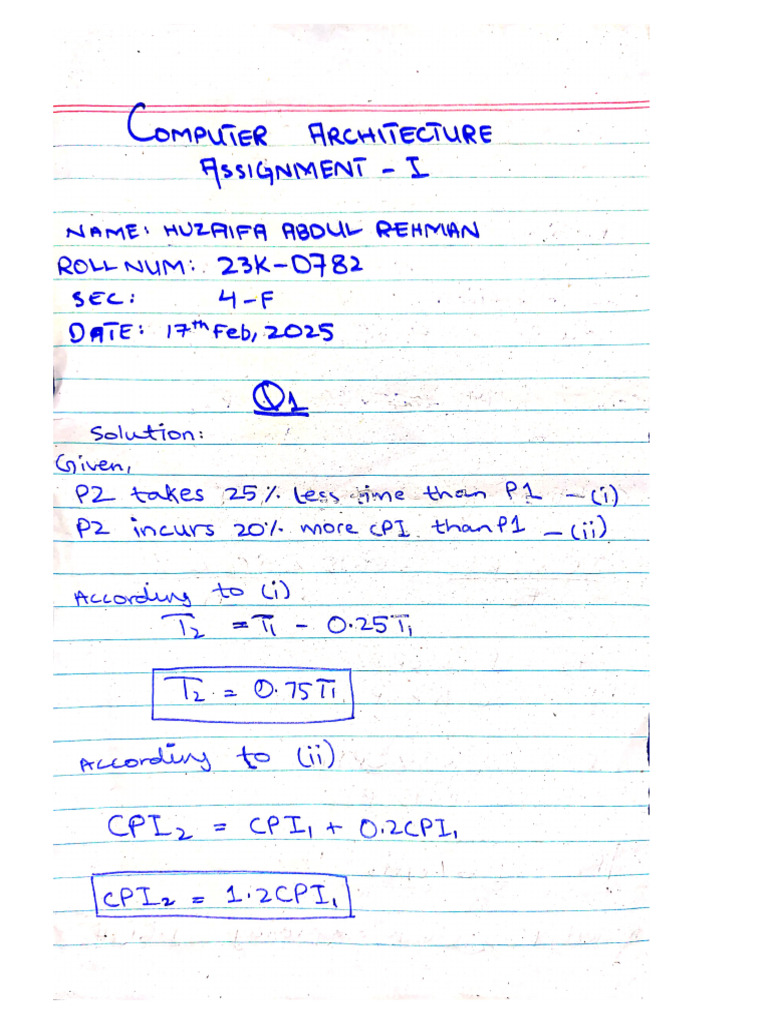 COMPUTER ARCHITECTURE
ASSIGNMENT - I
NAME: HUZAIFA ABDUL REHMAN
ROLL NUM: 23K-0782
SEC: 4-F
DATE: 17th Feb, 2025
Q1
Solution:
Given,
P2 takes 25% less time than P1 - (i)
P2 incurs 20% more CPI than P1 - (ii)
According to (i)
T₂ = T₁ - 0.25T₁
T₂ = 0.75T₁
According to (ii)
CPI₂ = CPI₁ + 0.2CPI₁
CPI₂ = 1.2CPI₁